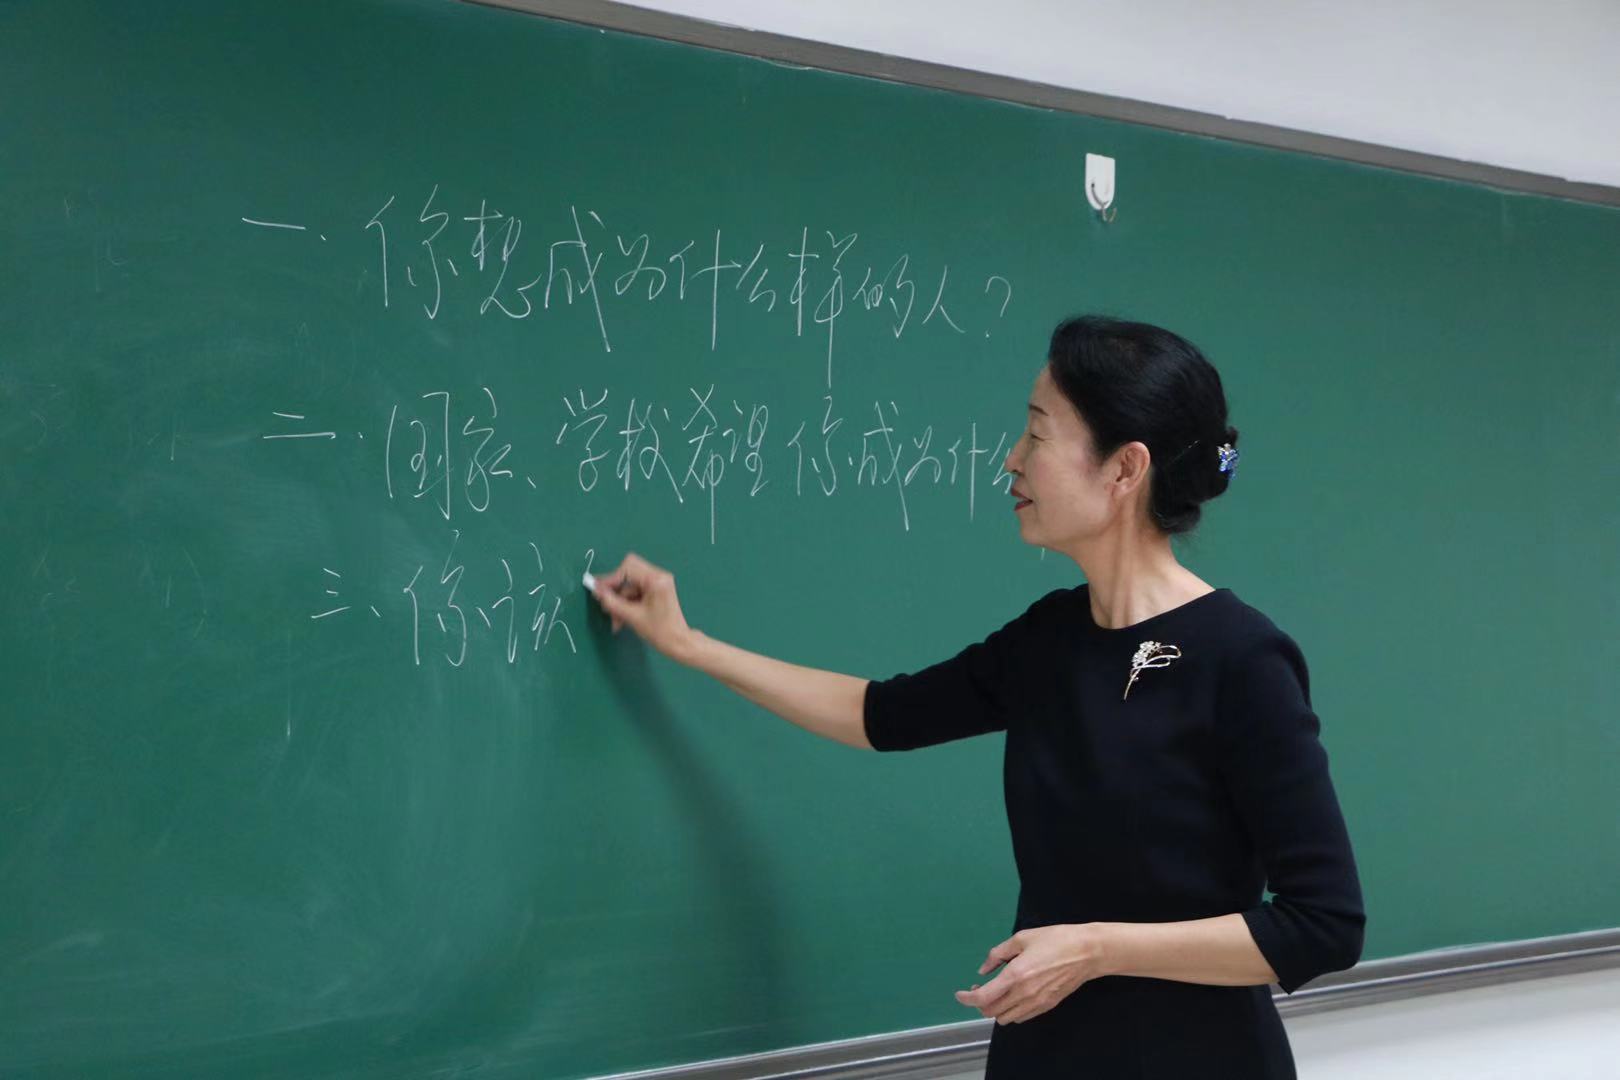 一、你想成为什么样的人？
二、国家、学校希望你成为什么
三、你该